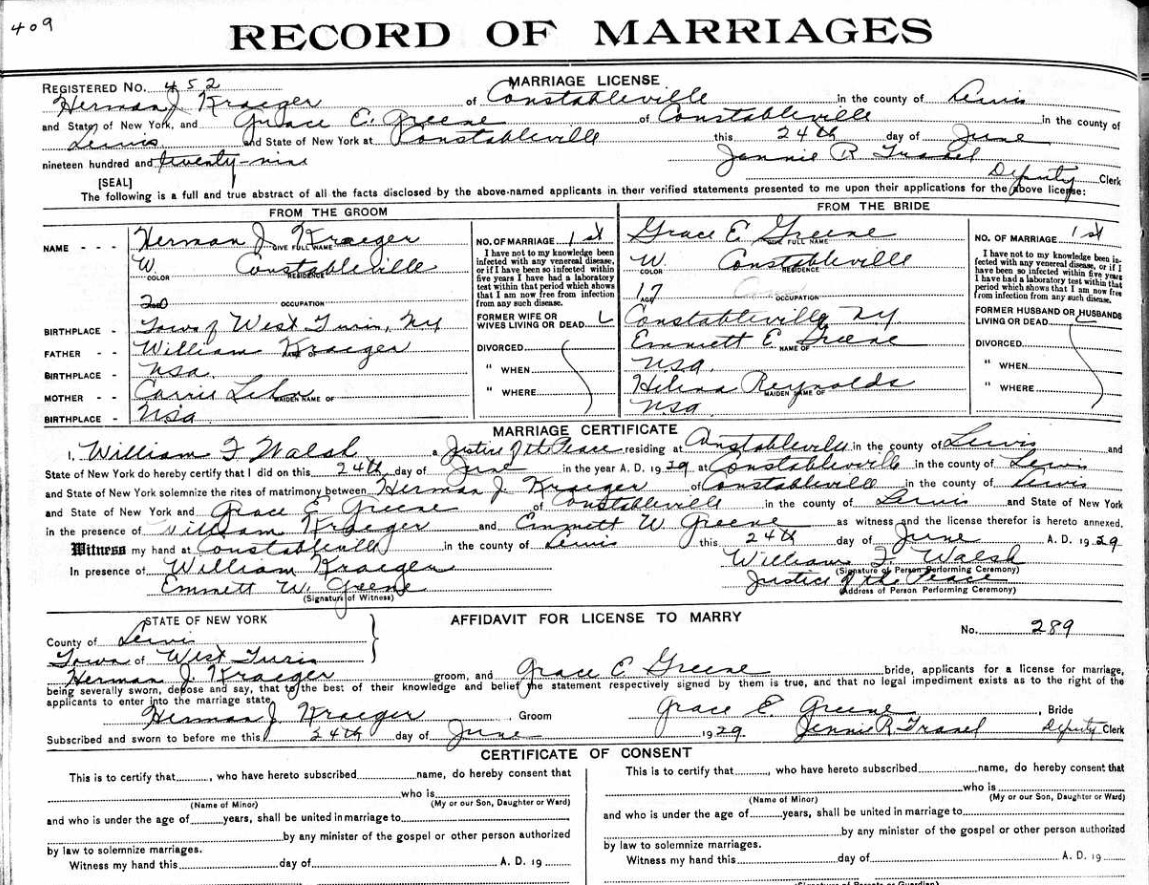 409
RECORD OF MARRIAGES
REGISTERED NO. 452 MARRIAGE LICENSE
Herman J. Kraeger of Constableville in the county of Lewis
and State of New York, and Grace E. Greene of Constableville in the county of
Lewis and State of New York at Constableville this 24th day of June
nineteen hundred and twenty-nine Jennie R Traxel
[SEAL] Deputy Clerk
The following is a full and true abstract of all the facts disclosed by the above-named applicants in their verified statements presented to me upon their applications for the above license:
FROM THE GROOM FROM THE BRIDE
NAME - - - Herman J. Kraeger GIVE FULL NAME NO. OF MARRIAGE 1st Grace E. Greene GIVE FULL NAME NO. OF MARRIAGE 1st
W. COLOR Constableville RESIDENCE I have not to my knowledge been infected with any venereal disease, or if I have been so infected within five years I have had a laboratory test within that period which shows that I am now free from infection from any such disease. W. COLOR Constableville RESIDENCE I have not to my knowledge been infected with any venereal disease, or if I have been so infected within five years I have had a laboratory test within that period which shows that I am now free from infection from any such disease.
20 OCCUPATION 17 AGE OCCUPATION
BIRTHPLACE - Town of West Turin, NY FORMER WIFE OR WIVES LIVING OR DEAD Constableville NY FORMER HUSBAND OR HUSBANDS LIVING OR DEAD
FATHER - - William Kraeger NAME OF DIVORCED Emmett E. Greene NAME OF DIVORCED
BIRTHPLACE - USA. " WHEN USA. " WHEN
MOTHER - - Carrie MAIDEN NAME OF " WHERE Helena Reynolds MAIDEN NAME OF " WHERE
BIRTHPLACE - USA USA
MARRIAGE CERTIFICATE
I, William F Walsh a Justice of the Peace residing at Constableville in the county of Lewis and
State of New York do hereby certify that I did on this 24th day of June in the year A. D. 1929 at Constableville in the county of Lewis
and State of New York solemnize the rites of matrimony between Herman J. Kraeger of Constableville in the county of Lewis
and State of New York and Grace E Greene of Constableville in the county of Lewis and State of New York
in the presence of William Kraeger and Emmett W Greene as witness and the license therefor is hereto annexed.
Witness my hand at Constableville in the county of Lewis this 24th day of June A. D. 1929
In presence of William Kraeger William F. Walsh
(Signature of Person Performing Ceremony)
Emmett W. Greene Justice of the Peace
(Signature of Witness) (Address of Person Performing Ceremony)
STATE OF NEW YORK AFFIDAVIT FOR LICENSE TO MARRY No. 289
County of Lewis
Town of West Turin
Herman J. Kraeger groom, and Grace E Greene bride, applicants for a license for marriage,
being severally sworn, depose and say, that to the best of their knowledge and belief the statement respectively signed by them is true, and that no legal impediment exists as to the right of the
applicants to enter into the marriage state.
Herman J. Kraeger , Groom Grace E. Greene , Bride
Subscribed and sworn to before me this 24th day of June 1929. Jennie R. Traxel Deputy Clerk
CERTIFICATE OF CONSENT
This is to certify that , who have hereto subscribed name, do hereby consent that This is to certify that , who have hereto subscribed name, do hereby consent that
who is who is
(Name of Minor) (My or our Son, Daughter or Ward) (Name of Minor) (My or our Son, Daughter or Ward)
and who is under the age of years, shall be united in marriage to and who is under the age of years, shall be united in marriage to
by any minister of the gospel or other person authorized by any minister of the gospel or other person authorized
by law to solemnize marriages. by law to solemnize marriages.
Witness my hand this day of A. D. 19 Witness my hand this day of A. D. 19
(Signature of Parents or Guardian)